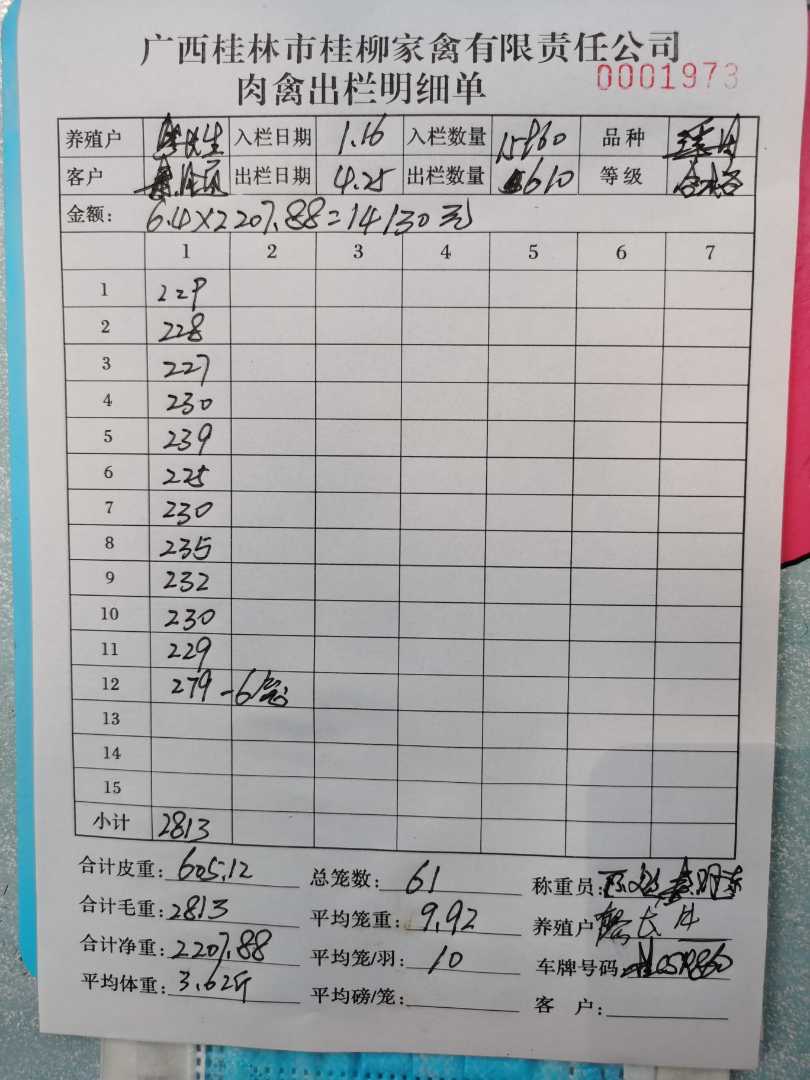 广西桂林市桂柳家禽有限责任公司
肉禽出栏明细单 0001973
养殖户 入栏日期 1.16 入栏数量 品种
客户 出栏日期 4.25 出栏数量 610 等级 合格
金额: 6.4×2207.88=14130元
1 2 3 4 5 6 7
1 229
2 228
3 227
4 230
5 239
6 225
7 230
8 235
9 232
10 230
11 229
12 279-6笼
13
14
15
小计 2813
合计皮重: 605.12 总笼数: 61 称重员:
合计毛重: 2813 平均笼重: 9.92 养殖户
合计净重: 2207.88 平均笼/羽: 10 车牌号码
平均体重: 3.62斤 平均磅/笼: 客 户: